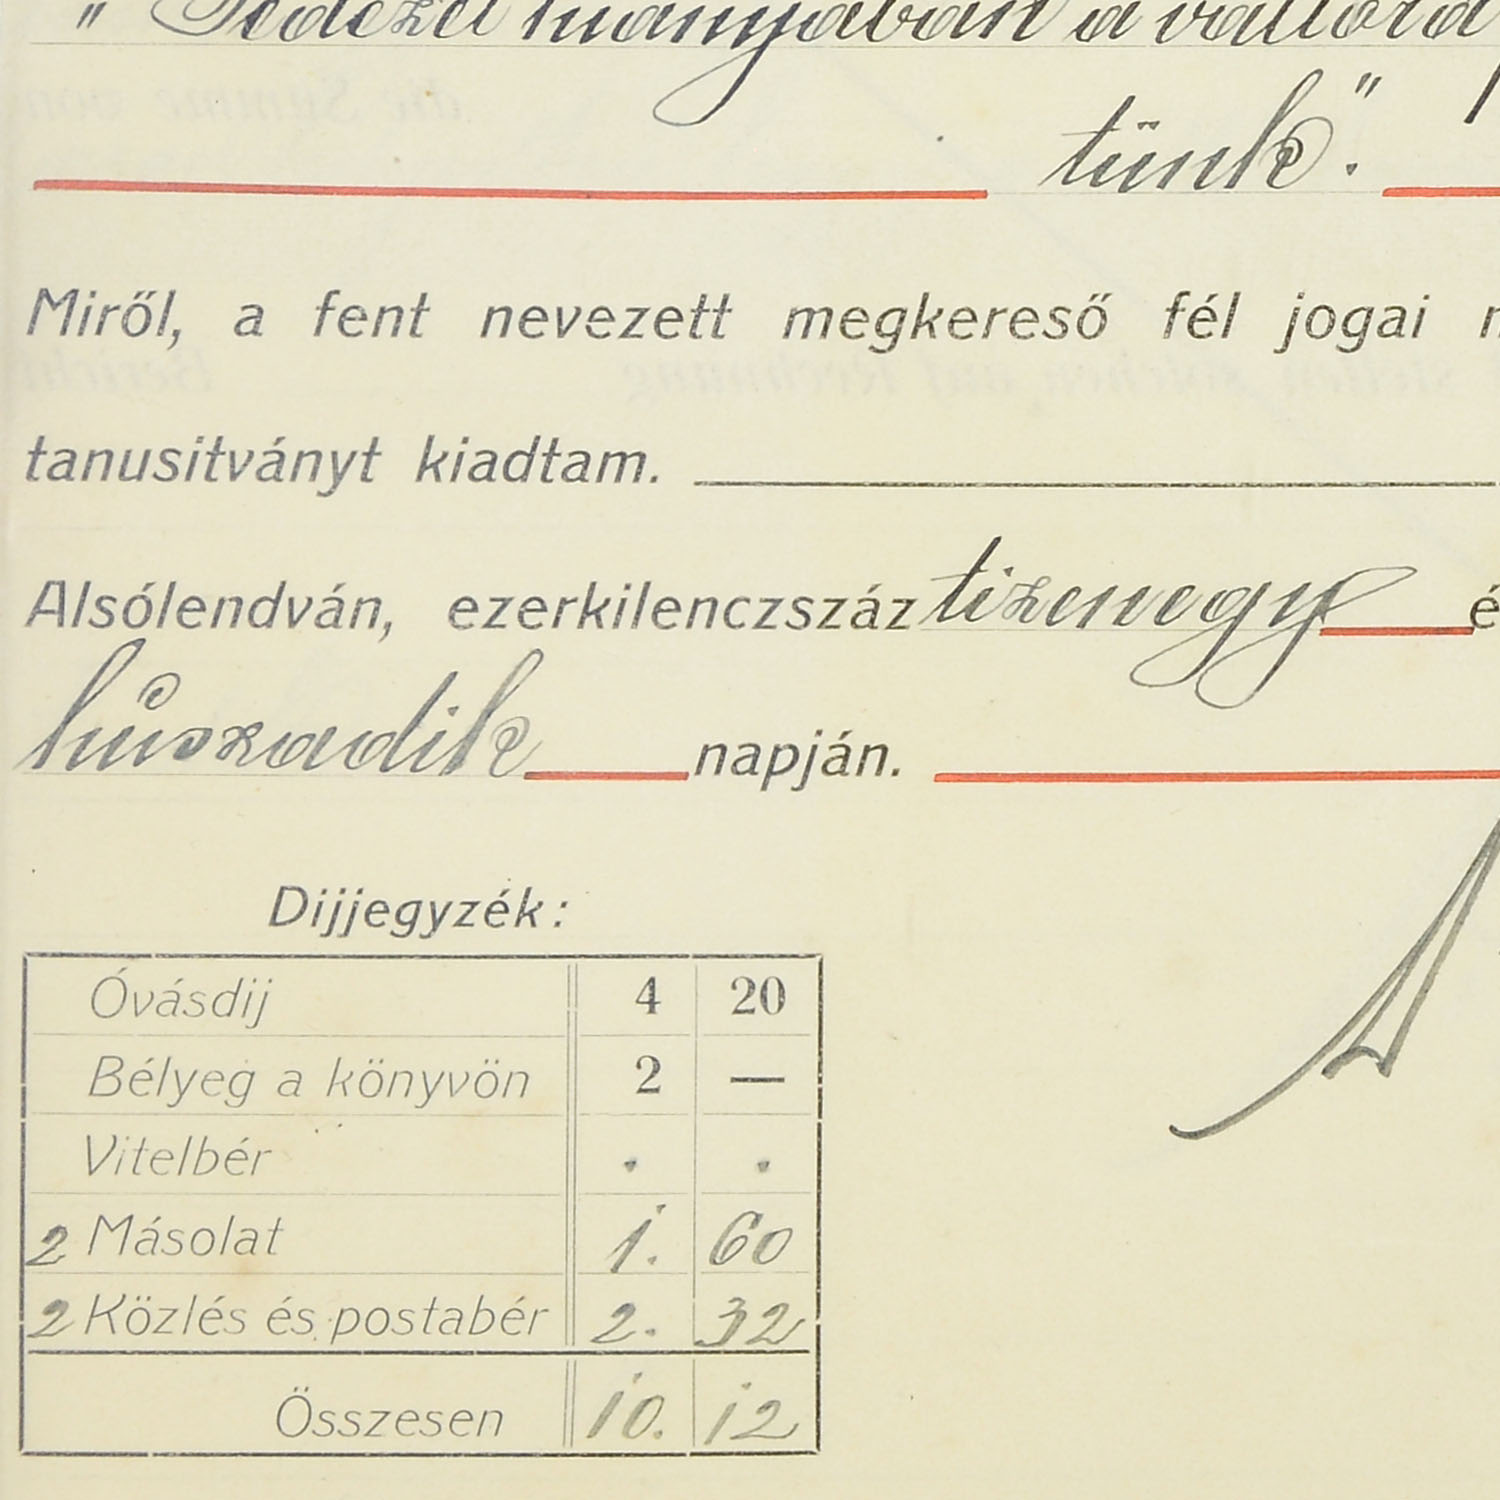 " Fedezet hiányában a váltót
tünk".
Miről, a fent nevezett megkereső fél jogai
tanusitványt kiadtam.
Alsólendván, ezerkilenczszáz tizenegy é
húszadik napján.
Dijjegyzék:
Óvásdij 4 20
Bélyeg a könyvön 2 —
Vitelbér . .
2 Másolat 1. 60
2 Közlés és postabér 2. 32
Összesen 10. 12